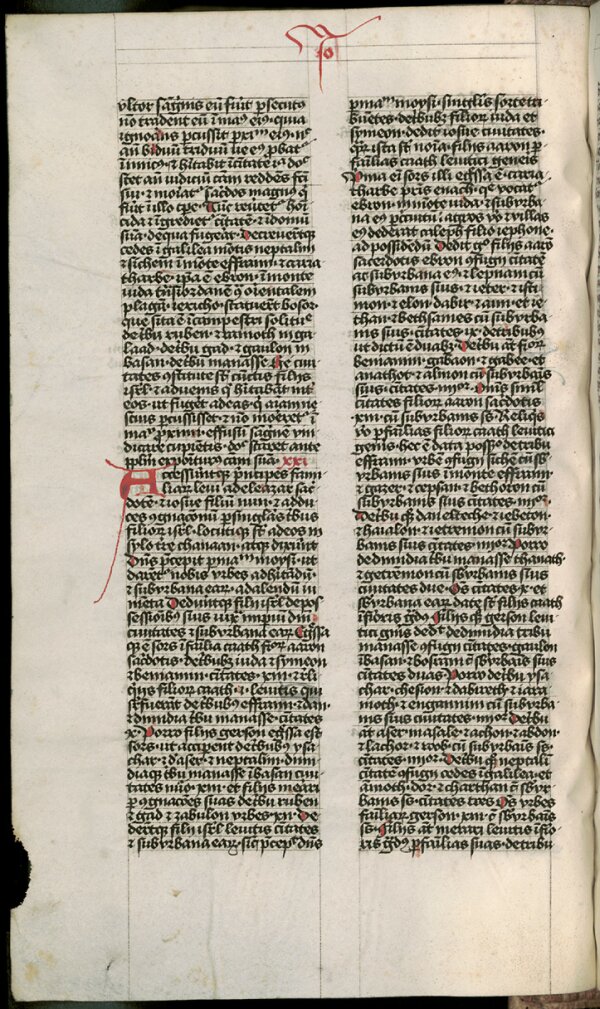 so
vltor sāginīs eū fūit psecut9
nō tradent eū ī man9 ei9 quia
ignorans pcussit pxīm ei9 nc
an biduū triduū ue ei9 pbat
inimic9 et hītabit ī ciuitate ia donec
stet an iudiciū cam reddēs fcī
sui et moriat sacdos magn9 q
fuit ī illo tpe Tūc reuertet homi
cida et īgrediet ciuitatē et domū
suā de qua fugerat Decreuertque
cedes ī galilea mōtis neptalim
et sichem ī mōte effraim et caria
tharbe ipā ē ebron ī monte
iuda tnsiordanē 9 orientalem
plagā iericho statuert bosor
que sita ē ī campestri solitudīe
de tbu ruben et ramoth in ga
laad de tbu gad et gaulon in
basan de tbu manasse He ciui
tates 9stitute st cūctis filiis
isrl et aduenis q hītabāt int
eos ut fugeret ad eas q aīam ne
scius pcussisset et nō moreret ī
manu pximi effusū sāginē vin
dicare cupiētis donec staret ante
pplm exposit9 cam suā xxi
Accesserūtque pncipes fami
liar leui ad eleazar sac
dotē et iosue filiū nun et ad du
ces 9gnacionū p singlas tbus
filior isrl locutique st ad eos in
sylo tre chanaan atque dixerūt
Dns pcepit p manu moysi ut
darent nobis vrbes ad hitādū
et suburbana ear ad alendū iu
menta Dederūtque filii isrl de pos
sessiōibus suis iux impiū dni
ciuitates et suburbana ear Egssa
que ē sors ī familia caath filior aaron
sacdotis de tbubus iuda et symeon
et beniamin ciuitates xiii et reli
quis filior caath i leuitis qui
supfuerāt de tbubus effraim et dan
et dimidia tbu manasse ciuitates
x Porro filiis gerson egssa est
sors ut acciperent de tbubus ysa
char et aser et neptalim dimi
diaque tbu manasse ī basan ciui
tates nuo xiii et filiis merari
p 9gnacōes suas de tbu ruben
et gad et zabulon vrbes xii De
dertque filii isrl leuitis ciuitates
et suburbana ear sicut pcepit dns
p manum moysi singulis sorte tri
buentes de tbubus filior iuda et
symeon dedit iosue ciuitates
quar ista st noīa filiis aaron p
familias caath leuitici generis
Prima ei sors illi egssa ē caria
tharbe pris enach que vocat
ebron in mōte iuda et suburba
na ei9 p circuitū agros vero et villas
ei9 dederat caleph filio iephone
ad possidendū Dedit ergo filiis aarō
sacerdotis ebron 9fugii ciuitatē
ac suburbana ei9 et lepnam cū
suburbanis suis et ieter et isti
mon et elon dabir et ain et ie
than et bethsames cū suburba
nis suis ciuitates ix de tribubus
ut dictū ē duabus De tbu at filior
beniamin gabaon et gabee et
anathot et almon cū suburbanis
suis ciuitates iiiior Oms siml
ciuitates filior aaron sacdotis
xiii cū suburbanis ss Reliqis
vero p familias filior caath leuitici
genis hec ē data possessio de tribu
effraim vrbes 9fugii sichē cū sub
urbanis suis ī monte effraim
et gazer et cepsan et bethoron cū
suburbanis suis ciuitates iiiior
De tbu quoque dan eltheche et iebeton
et haialon et ietremon cū subur
banis suis ciuitates iiiior Porro
de dimidia tbu manasse thanath
et getremon cū suburbanis suis
ciuitates due Oms ciuitates x et
suburbana ear date st filiis caath
inferioris gradus Filiis quoque gerson leui
tici genis dedit de dimidia tribu
manasse 9fugii ciuitates gaulon
ī basan et bosram cū suburbanis suis
ciuitates duas Porro de tbu ysa
char chesion et dabireth et iara
moth et engannim cū suburba
nis suis ciuitates iiiior De tbu
at aser masale et achon et abdon
et lachor et roob cū suburbanis ss
ciuitates iiiior De tbu quoque neptali
ciuitatē 9fugii cedes ī galilea et
amoth dor et charthan cū subur
banis ss ciuitates tres Oms vrbes
familiar gerson xiii cū suburbanis
ss Filiis at merari leuitis īferio
ris gradus p familias suas de tribu